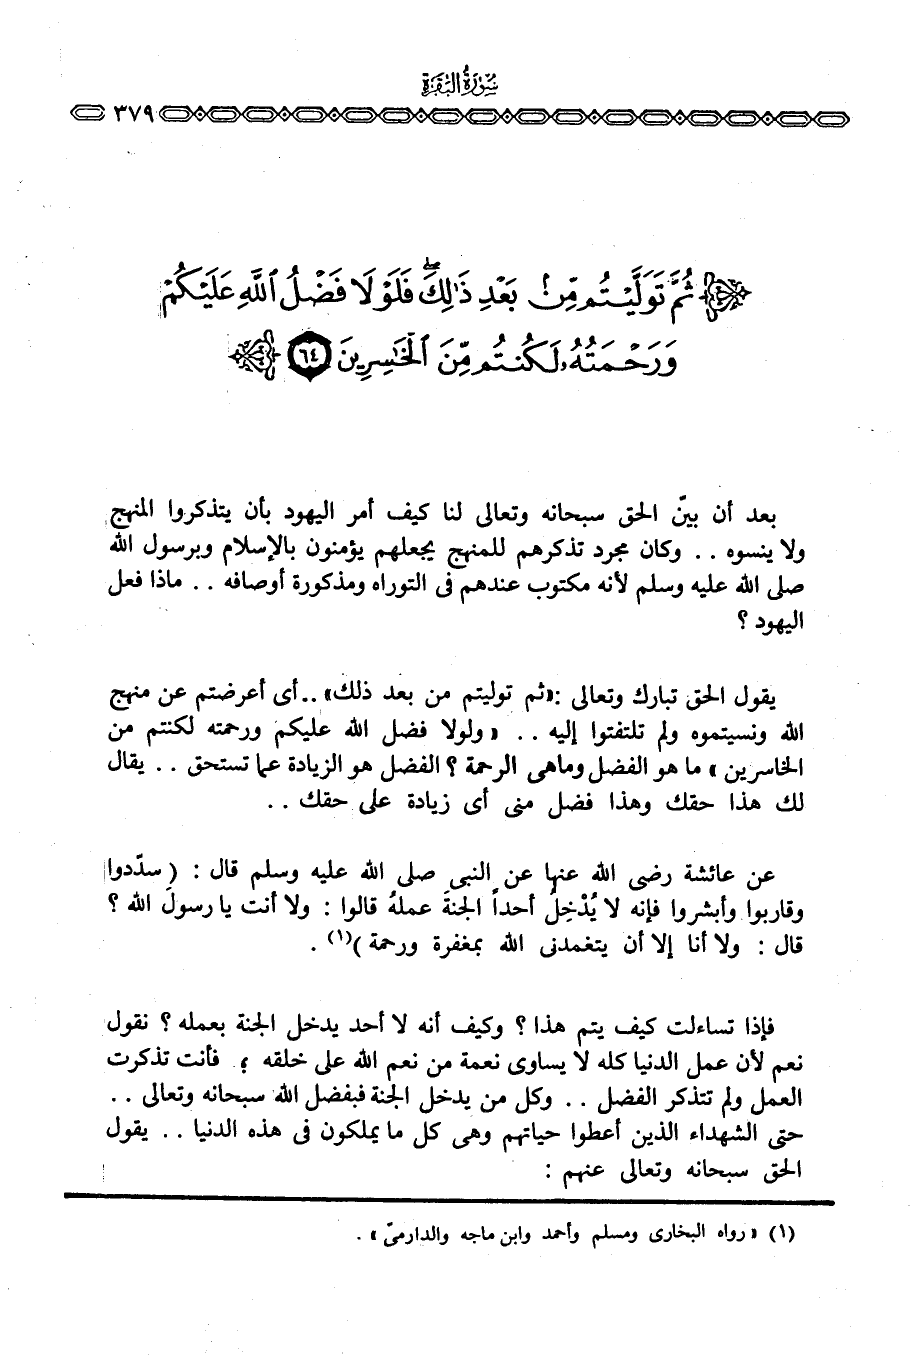 سُورَةُ الْبَقَرَةِ
٣٧٩
ثُمَّ تَوَلَّيْتُم مِّنۢ بَعْدِ ذَٰلِكَ ۖ فَلَوْلَا فَضْلُ ٱللَّهِ عَلَيْكُمْ
وَرَحْمَتُهُۥ لَكُنتُم مِّنَ ٱلْخَٰسِرِينَ ٦٤
بعد أن بيّن الحق سبحانه وتعالى لنا كيف أمر اليهود بأن يتذكروا المنهج
ولا ينسوه . . وكان مجرد تذكرهم للمنهج يجعلهم يؤمنون بالإسلام وبرسول الله
صلى الله عليه وسلم لأنه مكتوب عندهم فى التوراه ومذكورة أوصافه . . ماذا فعل
اليهود ؟
يقول الحق تبارك وتعالى : «ثم توليتم من بعد ذلك» . . أى أعرضتم عن منهج
الله ونسيتموه ولم تلتفتوا إليه . . « ولولا فضل الله عليكم ورحمته لكنتم من
الخاسرين » ما هو الفضل وماهى الرحمة ؟ الفضل هو الزيادة عما تستحق . . يقال
لك هذا حقك وهذا فضل منى أى زيادة على حقك . .
عن عائشة رضى الله عنها عن النبى صلى الله عليه وسلم قال : ( سدّدوا
وقاربوا وأبشروا فإنه لا يُدْخِلُ أحداً الجنةَ عملهُ قالوا : ولا أنت يا رسولَ الله ؟
قال : ولا أنا إلا أن يتغمدنى الله بمغفرة ورحمة )(١) .
فإذا تساءلت كيف يتم هذا ؟ وكيف أنه لا أحد يدخل الجنة بعمله ؟ نقول
نعم لأن عمل الدنيا كله لا يساوى نعمة من نعم الله على خلقه ؛ فأنت تذكرت
العمل ولم تتذكر الفضل . . وكل من يدخل الجنة فبفضل الله سبحانه وتعالى . .
حتى الشهداء الذين أعطوا حياتهم وهى كل ما يملكون فى هذه الدنيا . . يقول
الحق سبحانه وتعالى عنهم :
(١) « رواه البخارى ومسلم وأحمد وابن ماجه والدارمىّ » .